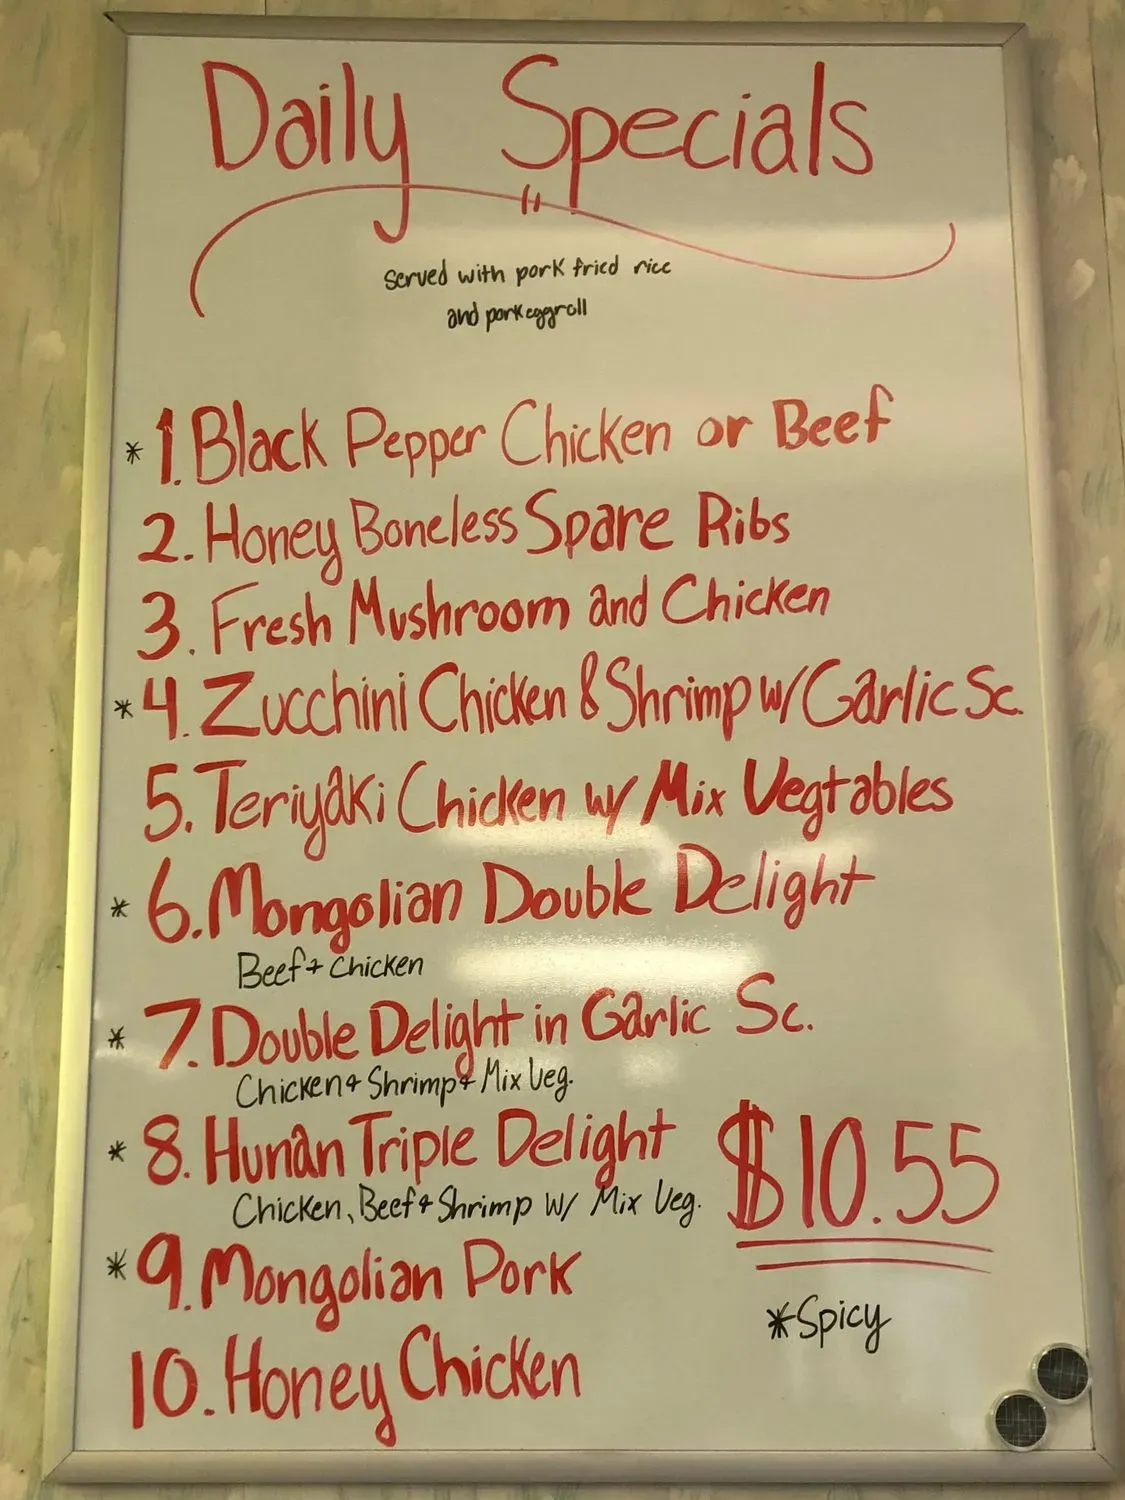 Daily Specials
served with pork fried rice
and pork eggroll
* 1. Black Pepper Chicken or Beef
2. Honey Boneless Spare Ribs
3. Fresh Mushroom and Chicken
* 4. Zucchini Chicken & Shrimp w/ Garlic Sc.
5. Teriyaki Chicken w/ Mix Vegtables
* 6. Mongolian Double Delight
Beef + Chicken
* 7. Double Delight in Garlic Sc.
Chicken & Shrimp & Mix Veg.
* 8. Hunan Triple Delight
Chicken, Beef & Shrimp w/ Mix Veg.
* 9. Mongolian Pork
10. Honey Chicken
$10.55
*Spicy